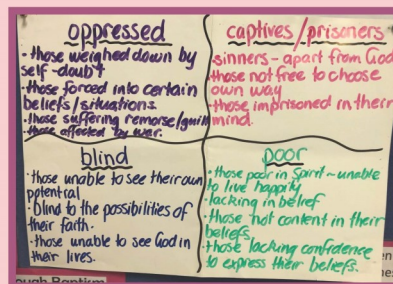 oppressed
• those weighed down by
self-doubt
• those forced into certain
beliefs/situations.
• those suffering remorse/guilt
• those affected by war.
captives/prisoners
• sinners - apart from God
those not free to choose
own way
• those imprisoned in their
mind.
blind
• those unable to see their own
potential
• blind to the possibilities of
their faith.
• those unable to see God in
their lives.
poor
• those poor in Spirit ~ unable
to live happily
• lacking in belief
• those not content in their
beliefs
• those lacking confidence
to express their beliefs.
ough Baptism